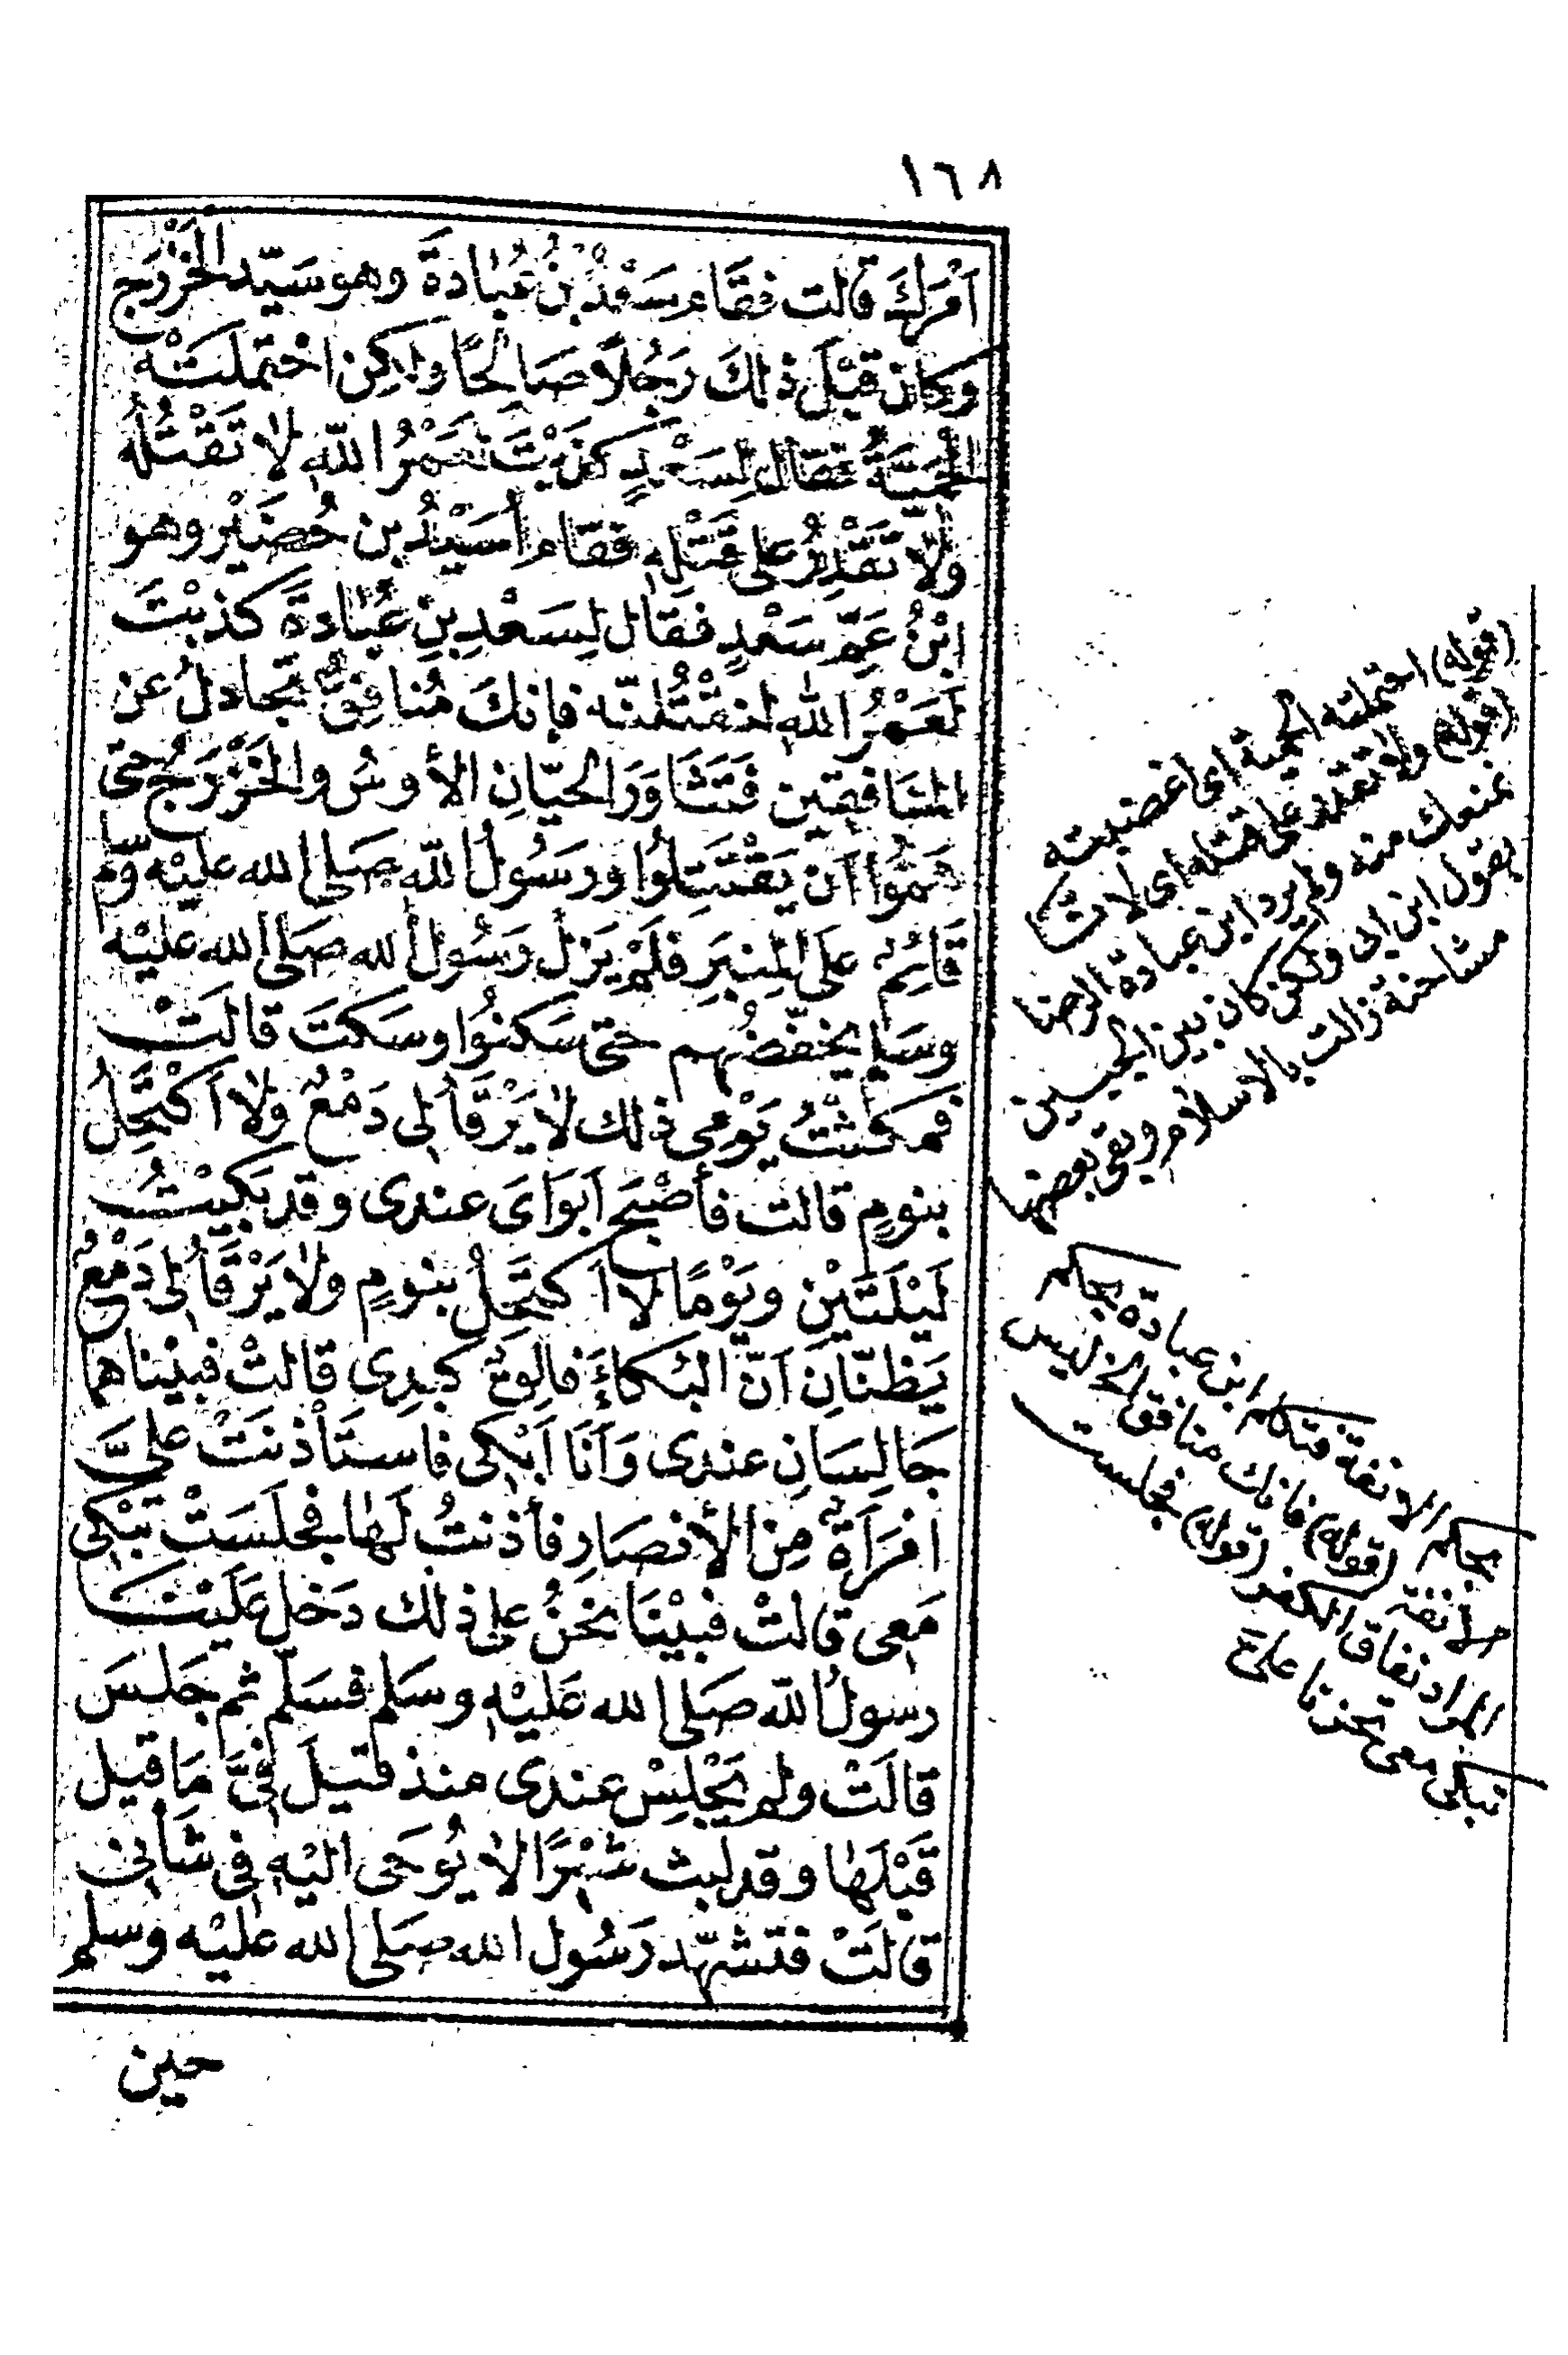 ١٦٨
اَمْرَكَ قالت فقَام سَعْدُ بْنُ عُبَادةَ وهو سَيّد الخَزْرَج
وَكانَ قَبْلَ ذلكَ رَجُلاً صَالِحًا ولكِن احْتَملَتْه
الحَمِيَّةُ فقال لِسَعْدٍ كَذَبْتَ لَعَمْرُ اللّهِ لا تَقْتُلُه
وَلَا تَقْدِرُ على قَتْلِهِ فقام اُسَيْدُ بن حُضَيْر وهو
ابْنُ عَمّ سَعْدٍ فقَال لِسَعْدِ بنِ عُبَادةَ كذبْتَ
لَعَمْرُ اللهِ لنَقْتُلنّه فإنكَ مُنافِقٌ تُجادلُ عن
المنَافقين فَتَثَاوَرَ الحيّانِ الأوسُ والخَزْرَجُ حتى
هَمُّوا اَنْ يَقْتَتِلُوا ورَسُولُ اللّه صَلى الله علَيْه وسَلم
قَائِمٌ علَى المِنبَرِ فلَمْ يَزلْ رَسُولُ الله صَلى الله عليْه
وسَلم يخفّضُهم حتى سَكتُوا وسَكتَ قالتْ
فمكثْتُ يَوْمِى ذلك لا يَرْقَأُ لى دَمْعٌ ولا اَكْتَحِلُ
بنومٍ قالت فأصْبَح اَبوَاىَ عندى وقد بَكَيْتُ
لَيْلَتَيْن ويَوْمًا لا اَكتَحِلُ بنومٍ ولا يَرْقَأُ لى دَمْعٌ
يَظنّانِ اَنّ البُكاءَ فالِقٌ كبدِى قالتْ فبيْناهما
جَالِسَانِ عندى وَاَنَا اَبْكى فاستَأذنَتْ علىَّ
امْرَاَةٌ مِنَ الأنصَارِ فأذنتُ لَهَا فجلَسَتْ تَبْكى
مَعى قالتْ فبيْنَا نحنُ على ذلك دَخل عَلَيْنَا
رسولُ اللّه صَلى الله عَليْهِ وسَلم فسَلّم ثم جَلسَ
قالَتْ ولم يَجْلِسْ عندى منذ قيلَ فىَّ مَا قيل
قَبْلَهَا وقد لبث شهْرًا لا يُوحَى اليْهِ فى شَأنى
قالَتْ فتشهّد رَسُول الله صَلى الله علَيْه وسلم
حين
(قوله) احتملته الحمية اى اغضبته
(قوله) ولا تقدر على قتله اى لانا
نمنعك منه ولم يرد ابن عبادة الرضا
بقول ابن ابى ولكن كان بين الحيين
مشاحنة زالت بالاسلام وبقى بعضها
بحكم الانفة فتكلم ابن عبادة بحكم
الانفة (قوله) فانك منافق الخ ليس
المراد نفاق الكفر (قوله) فجلست
تبكى معى تحزنا علىّ